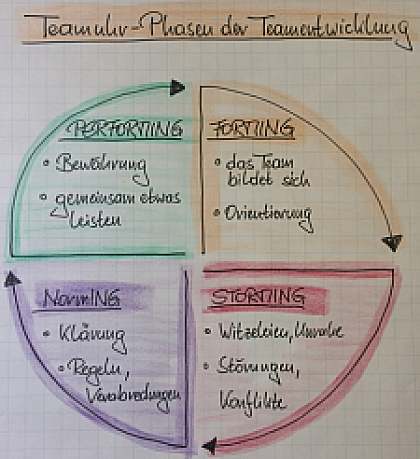 Teamuhr-Phasen der Teamentwicklung
PERFORMING
• Bewährung
• gemeinsam etwas
leisten
FORMING
• das Team
bildet sich
• Orientierung
NORMING
• Klärung
• Regeln,
Verabredungen
STORMING
• Witzeleien, Unruhe
• Störungen,
Konflikte